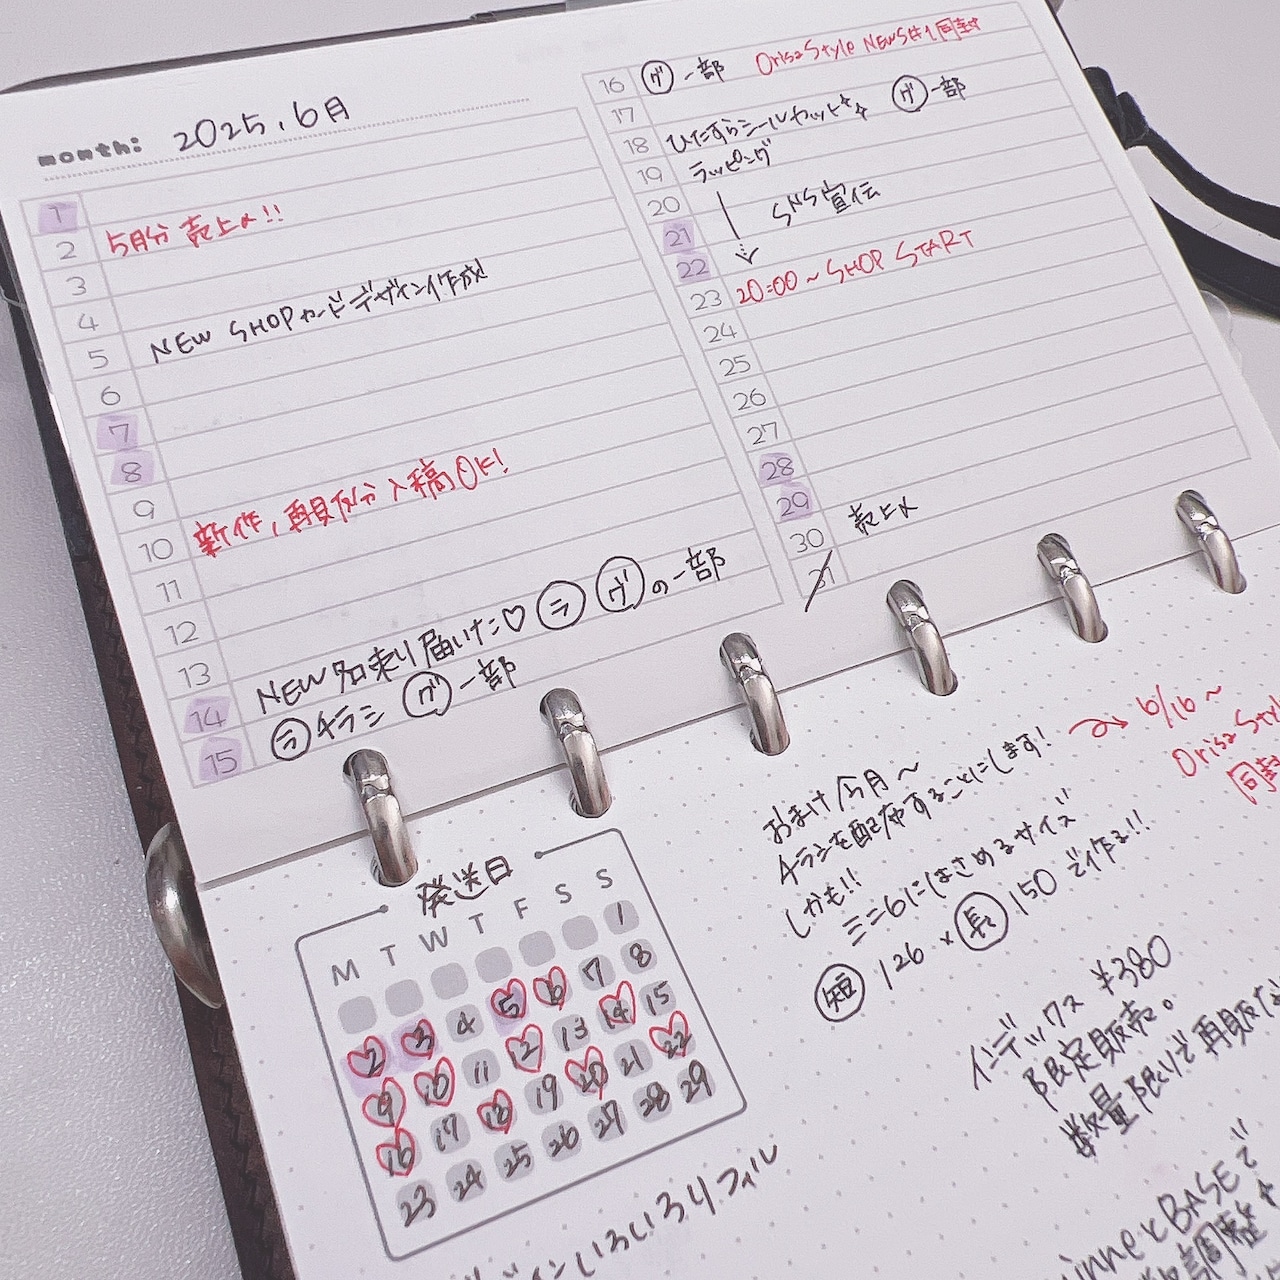 month: 2025.6月
1
2 5月分 売上〆!!
3
4
5 NEW SHOPカードデザイン作成
6
7
8
9
10 新作,再販分入稿OK!
11
12
13
14 NEW 名来り届いた♡ ラ ヴの一部
15 ラ チラシ ヴ一部
16 ヴ一部 OrisaStyle NEWS#1同封
17
18 ひたすらシールカット ヴ一部
19 ラッピング
20 SNS宣伝
21
22
23 20:00~SHOP START
24
25
26
27
28
29
30 売上〆
31
発送日
M T W T F S S
1
2 3 4 5 6 7 8
9 10 11 12 13 14 15
16 17 18 19 20 21 22
23 24 25 26 27 28 29
おまけ/今月~
チラシを配布することにします! → 6/16~
OrisaStyl
同封
しかも!!
ミニ6にはさめるサイズ
短 126 × 長 150 で作る!!
インデックス ¥380
限定販売。
数量限りで再販な
いろいろリフィル
inneとBASEで
調整